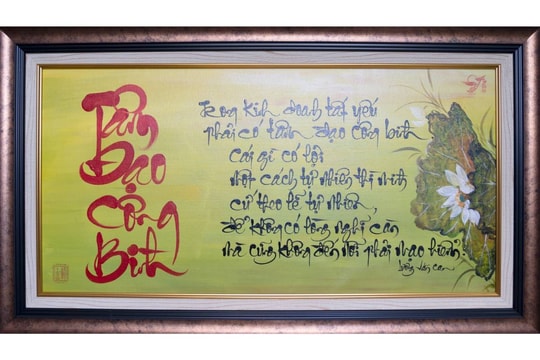 Tâm
Đạo
Công
Bình
Trong kinh doanh tất yếu
phải có tâm đạo công bình
Cái gì có lợi
một cách tự nhiên thì mình
cứ theo lẽ tự nhiên,
để không có lòng nghĩ cản
mà cũng không đến nỗi phải mạo hiểm.